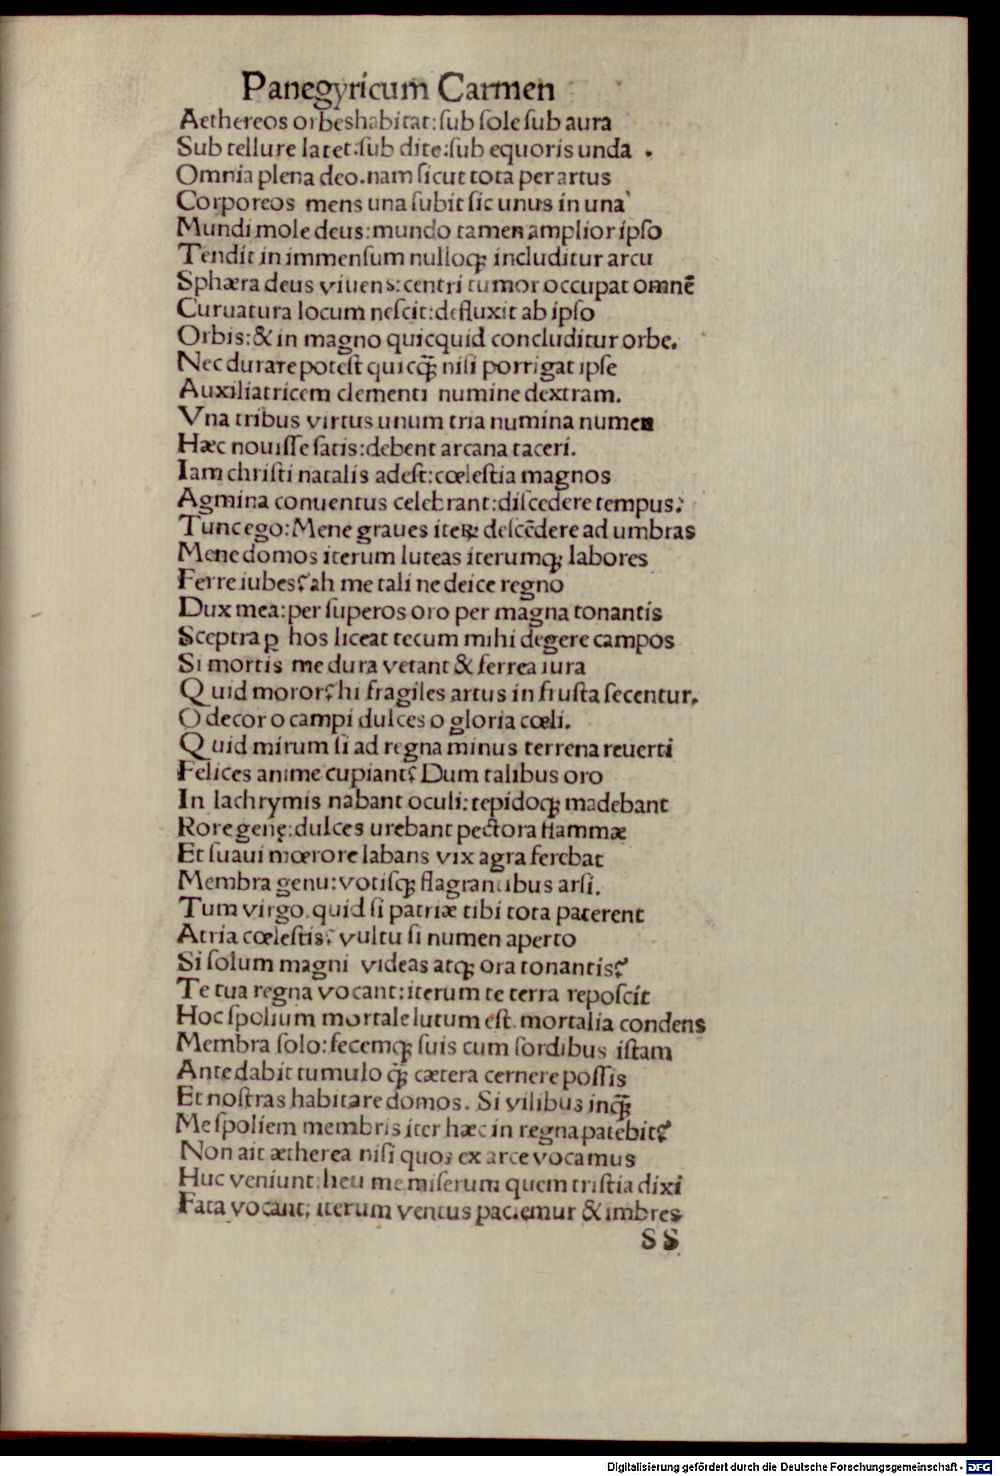 Panegyricum Carmen
Aethereos orbes habitat: ſub ſole ſub aura
Sub tellure latet: ſub dite: ſub equoris unda .
Omnia plena deo. nam ſicut tota per artus
Corporeos mens una ſubit ſic unus in una
Mundi mole deus: mundo tamen amplior ipſo
Tendit in immenſum nulloq; includitur arcu
Sphæra deus viuens: centri tumor occupat omnē
Curuatura locum neſcit: defluxit ab ipſo
Orbis: & in magno quicquid concluditur orbe.
Nec durare poteſt quicq̄; niſi porrigat ipſe
Auxiliatricem clementi numine dextram.
Vna tribus virtus unum tria numina numen
Hæc nouiſſe ſatis: debent arcana taceri.
Iam chriſti natalis adeſt: cœleſtia magnos
Agmina conuentus celebrant: diſcedere tempus.
Tunc ego: Mene graues iteꝝ deſcēdere ad umbras
Mene domos iterum luteas iterumq; labores
Ferre iubes? ah me tali ne deice regno
Dux mea: per ſuperos oro per magna tonantis
Sceptra ꝑ hos liceat tecum mihi degere campos
Si mortis me dura vetant & ferrea iura
Quid moror? hi fragiles artus in fruſta ſecentur.
O decor o campi dulces o gloria cœli.
Quid mirum ſi ad regna minus terrena reuerti
Felices anime cupiant? Dum talibus oro
In lachrymis nabant oculi: tepidoq; madebant
Rore genę: dulces urebant pectora flammæ
Et ſuaui mœrore labans vix agra ferebat
Membra genu: votiſq; flagrantibus arſi.
Tum virgo. quid ſi patriæ tibi tota paterent
Atria cœleſtis? vultu ſi numen aperto
Si ſolum magni videas atq; ora tonantis?
Te tua regna vocant: iterum te terra repoſcit
Hoc ſpolium mortale lutum eſt. mortalia condens
Membra ſolo: fecemq; ſuis cum ſordibus iſtam
Ante dabit tumulo q̄; cætera cernere poſſis
Et noſtras habitare domos. Si vilibus inq̄;
Me ſpoliem membris iter hæc in regna patebit?
Non ait ætherea niſi quos ex arce vocamus
Huc veniunt. heu me miſerum quem triſtia dixi
Fata vocant: iterum ventus patiemur & imbres
SS
Digitalisierung gefördert durch die Deutsche Forschungsgemeinschaft - DFG